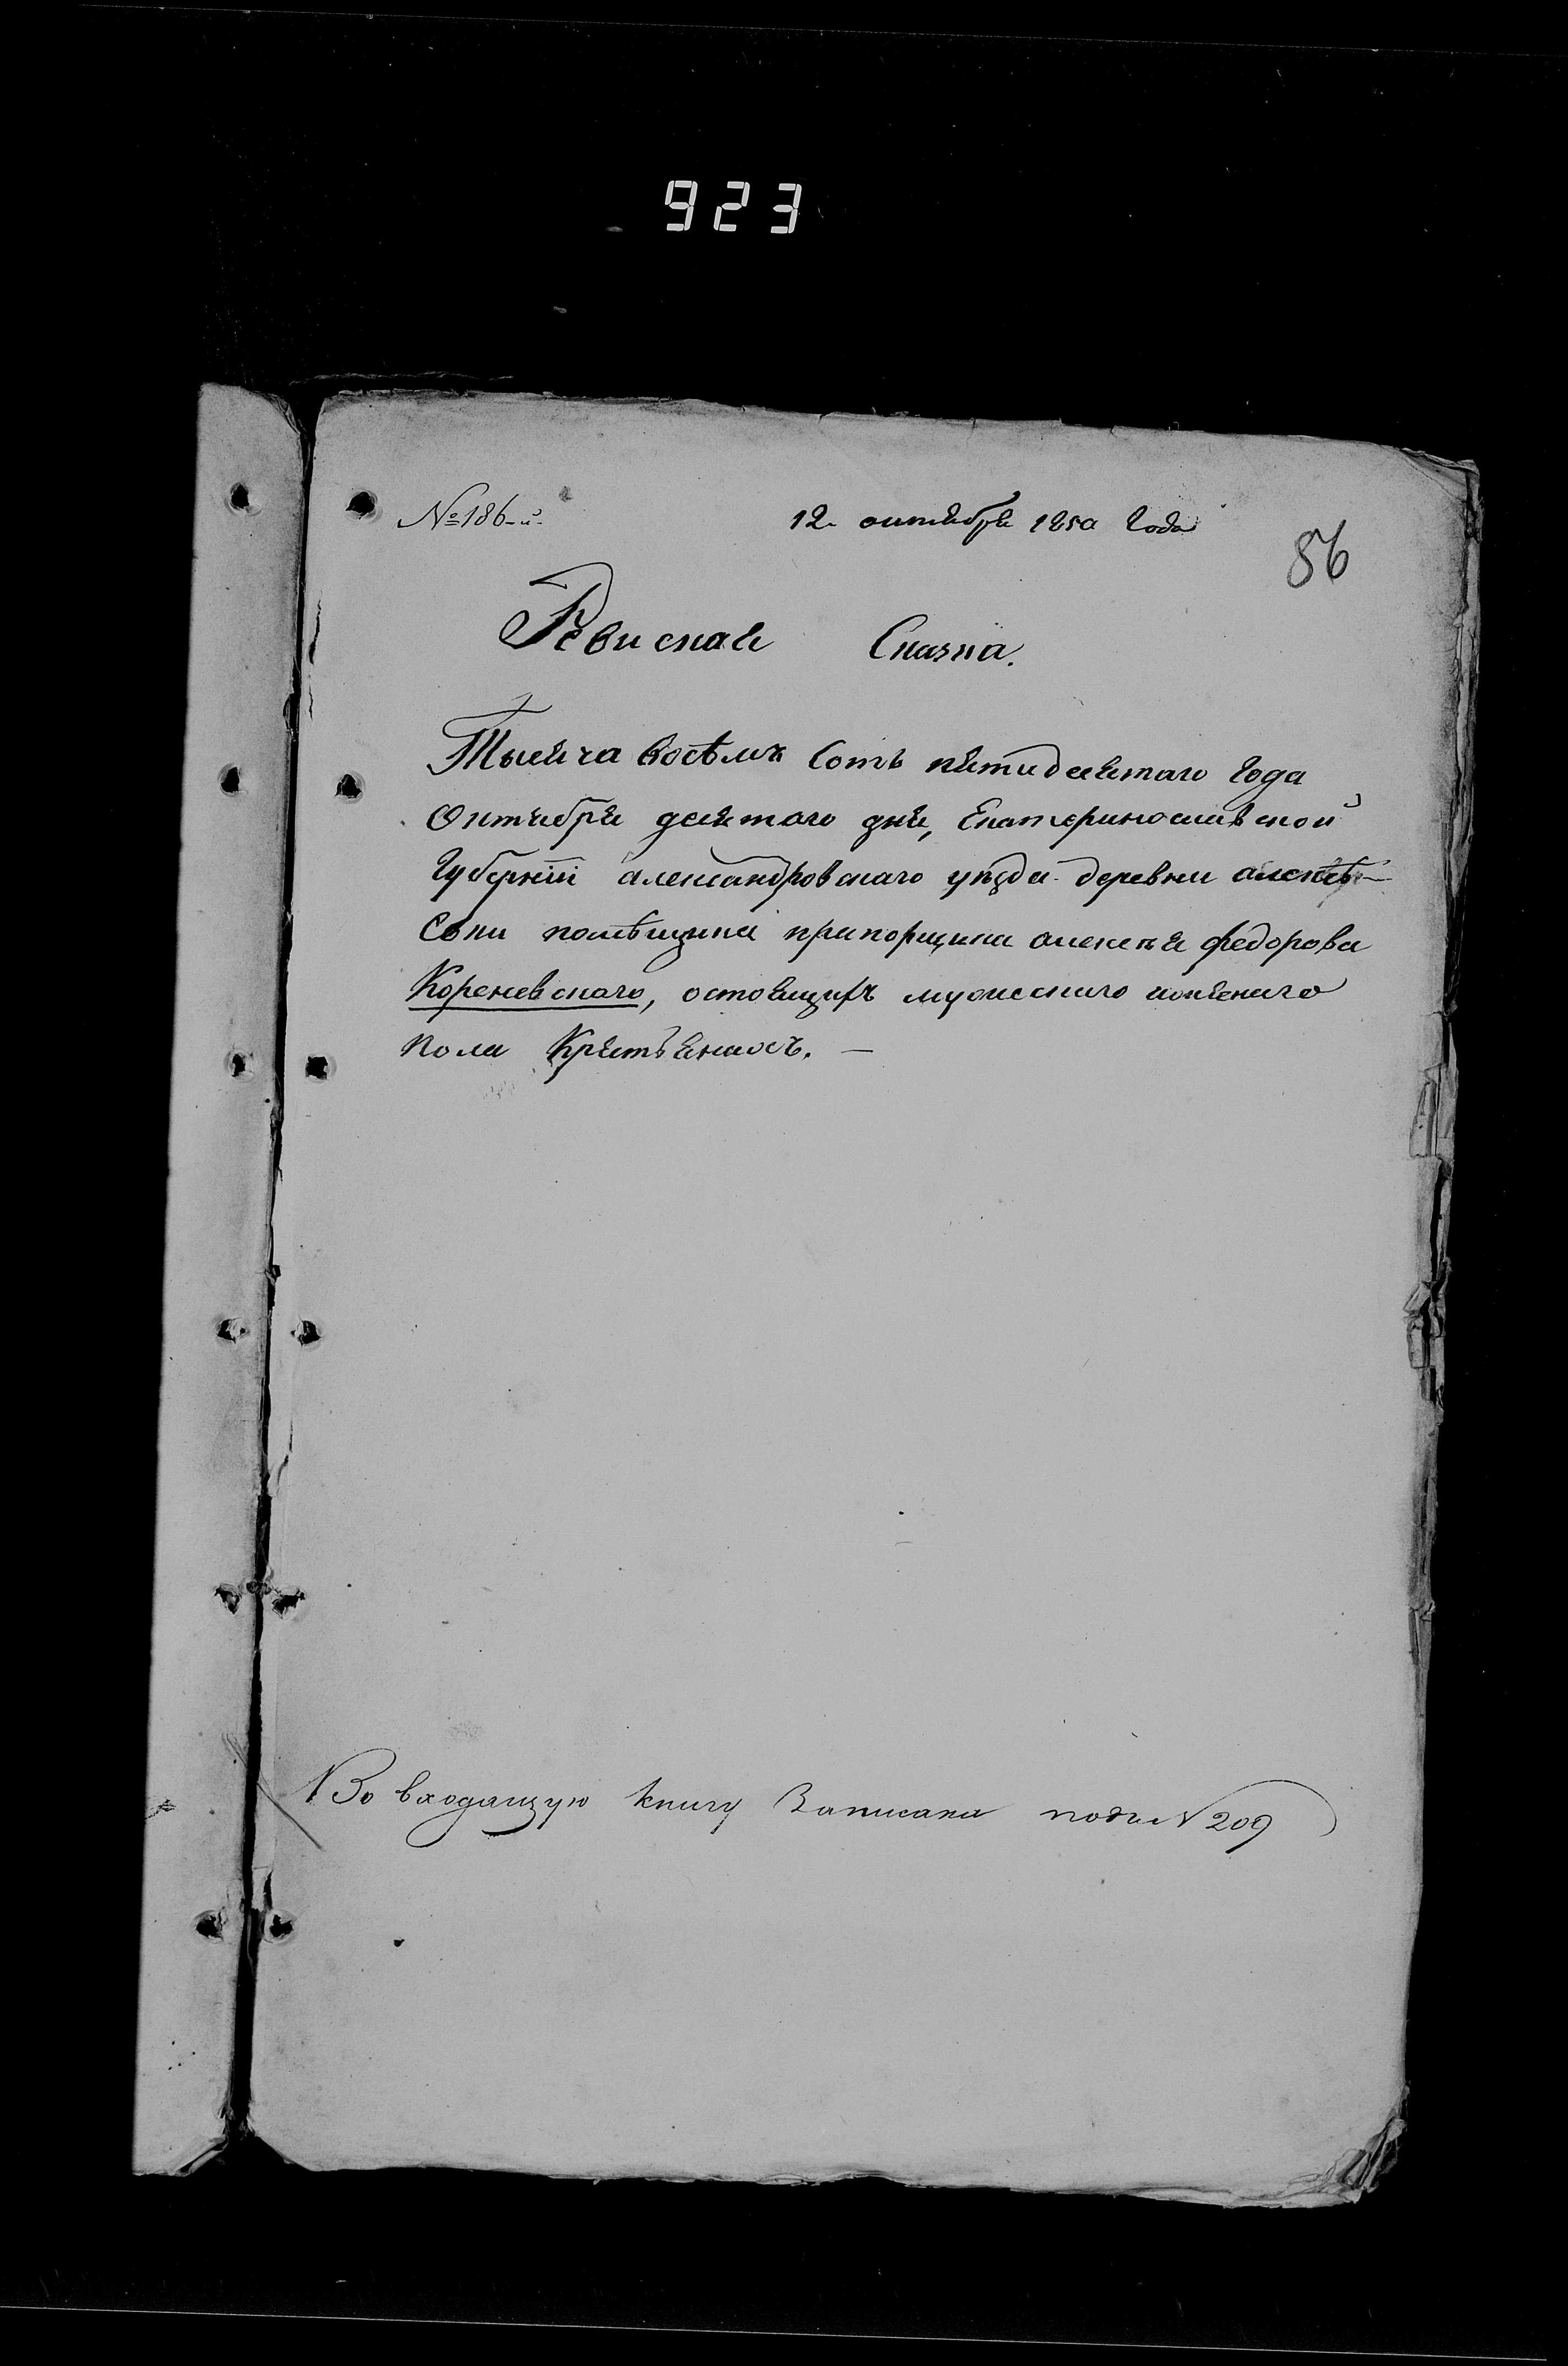 923
№ 186-й.
12. октября 1850 Года
86
Ревиская Сказка.
Тысяча восѣмъ Сотъ пятидесятаго Года
Октября десятаго дня, Екатеринославской
Губерніи александровскаго уѣзда деревни алексѣ-
помѣщика прапорщика алексѣя федорова
Кореневскаго, о мужескаго
пола Крѣстьянахъ. —
Во входящую книгу Записана подъ № 209